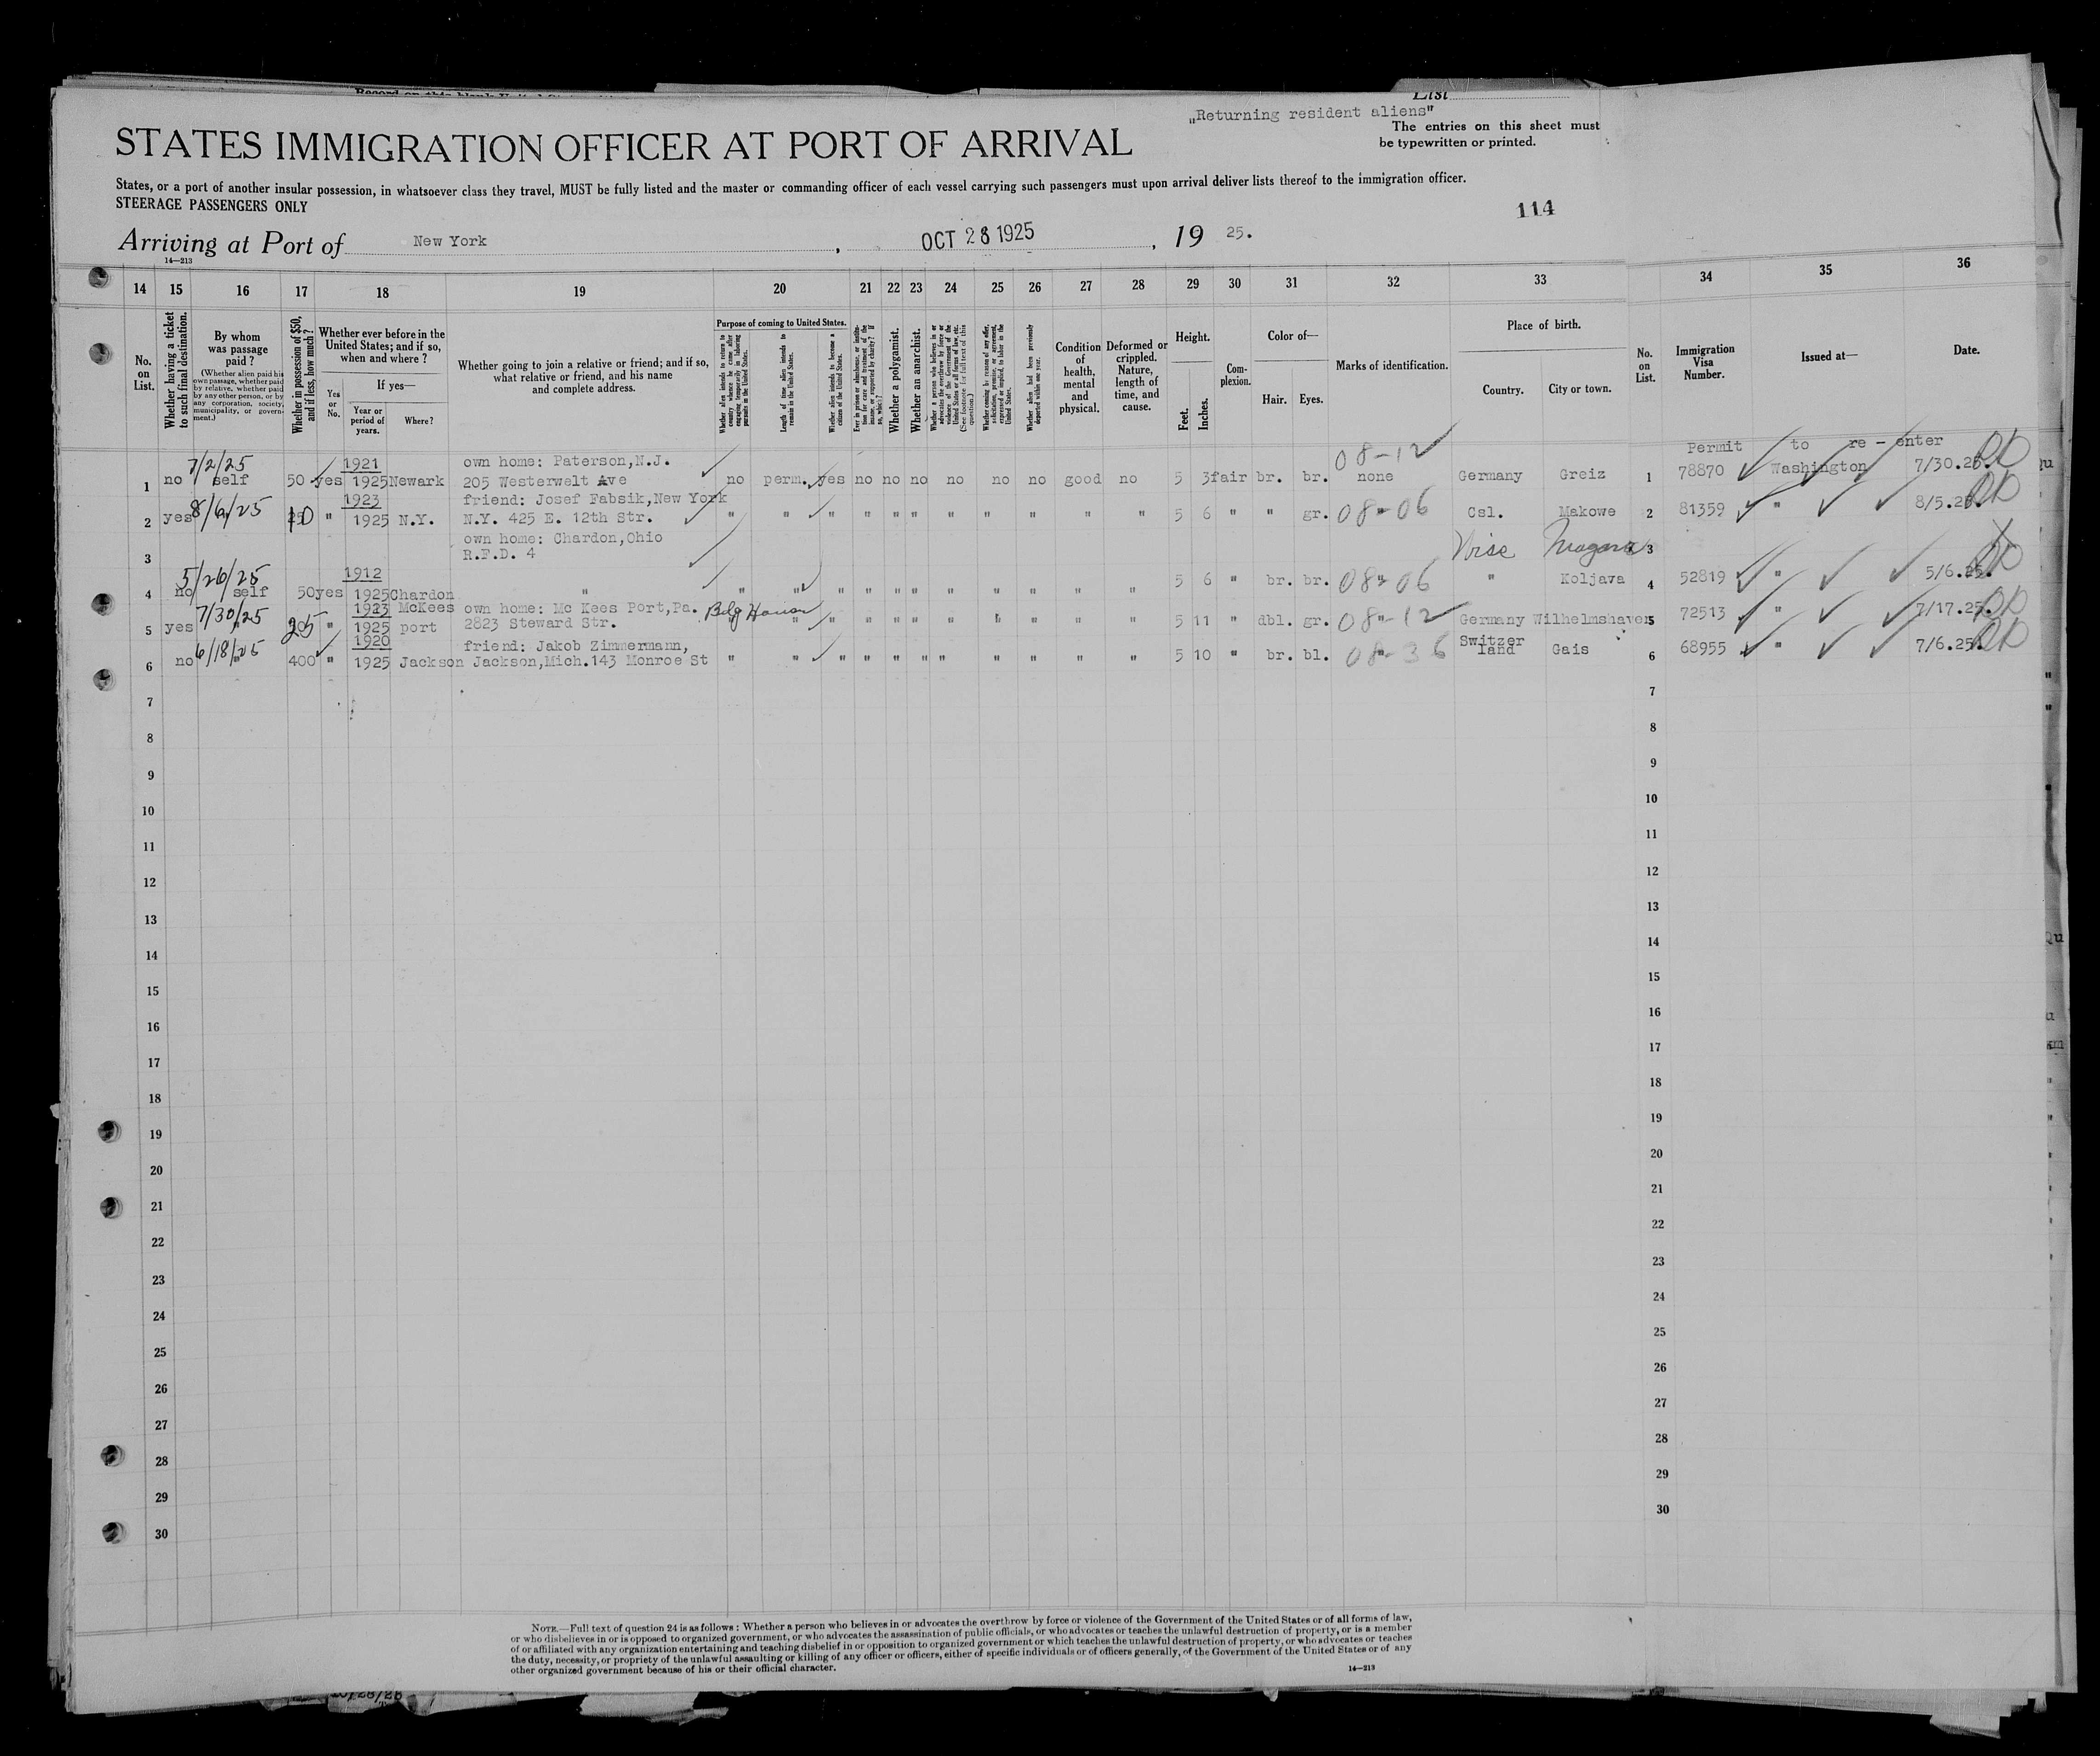 List
„Returning resident aliens"
The entries on this sheet must
be typewritten or printed.
STATES IMMIGRATION OFFICER AT PORT OF ARRIVAL
States, or a port of another insular possession, in whatsoever class they travel, MUST be fully listed and the master or commanding officer of each vessel carrying such passengers must upon arrival deliver lists thereof to the immigration officer.
STEERAGE PASSENGERS ONLY
114
Arriving at Port of New York , OCT 28 1925 , 19 25.
14—213
14 15 16 17 18 19 20 21 22 23 24 25 26 27 28 29 30 31 32 33 34 35 36
No. on List.
Whether having a ticket to such final destination.
By whom was passage paid?
(Whether alien paid his own passage, whether paid by relative, whether paid by any other person, or by any corporation, society, municipality, or government.)
Whether in possession of $50, and if less, how much?
Whether ever before in the United States; and if so, when and where?
Yes or No.
If yes—
Year or period of years.
Where?
Whether going to join a relative or friend; and if so, what relative or friend, and his name and complete address.
Purpose of coming to United States.
Whether alien intends to return to country whence he came after engaging temporarily in laboring pursuits in the United States.
Length of time alien intends to remain in the United States.
Whether alien intends to become a citizen of the United States.
Whether a polygamist.
Whether an anarchist.
Whether alien had been previously deported within one year.
Condition of health, mental and physical.
Deformed or crippled. Nature, length of time, and cause.
Height.
Feet. Inches.
Complexion.
Color of—
Hair. Eyes.
Marks of identification.
Place of birth.
Country. City or town.
No. on List.
Immigration Visa Number.
Issued at—
Date.
Permit to re - enter
7/2/25 1921 own home: Paterson,N.J. 08-12
1 no self 50 yes 1925 Newark 205 Westerwelt Ave no perm. yes no no no no no no good no 5 3 fair br. br. none Germany Greiz 1 78870 Washington 7/30.25.
8/6/25 1923 friend: Josef Fabsik,New York
2 yes " 1925 N.Y. N.Y. 425 E. 12th Str. " " " " " " " " " " " 5 6 " " gr. 08-06 Csl. Makowe 2 81359 " 8/5.25.
own home: Chardon,Ohio
3 R.F.D. 4 3
5/26/25 1912
4 no self 50 yes 1925 Chardon " " " " " " " " " " " " 5 6 " br. br. 08-06 " Koljava 4 52819 " 5/6.25.
7/30/25 1923 McKees own home: Mc Kees Port,Pa. Bdg House
5 yes 25 " 1925 port 2823 Steward Str. " " " " " " " " " " 5 11 " dbl. gr. 08-12 Germany Wilhelmshaven 5 72513 " 7/17.25.
6/18/25 1920 friend: Jakob Zimmermann, Switzer
6 no " 400 " 1925 Jackson Jackson,Mich.143 Monroe St " " " " " " " " " " " 5 10 " br. bl. 08-36 land Gais 6 68955 " 7/6.25.
7 7
8 8
9 9
10 10
11 11
12 12
13 13
14 14
15 15
16 16
17 17
18 18
19 19
20 20
21 21
22 22
23 23
24 24
25 25
26 26
27 27
28 28
29 29
30 30
NOTE.—Full text of question 24 is as follows: Whether a person who believes in or advocates the overthrow by force or violence of the Government of the United States or of all forms of law,
or who disbelieves in or is opposed to organized government, or who advocates the assassination of public officials, or who advocates or teaches the unlawful destruction of property, or is a member
of or affiliated with any organization entertaining and teaching disbelief in or opposition to organized government or which teaches the unlawful destruction of property, or who advocates or teaches
the duty, necessity, or propriety of the unlawful assaulting or killing of any officer or officers, either of specific individuals or of officers generally, of the Government of the United States or of any
other organized government because of his or their official character.
14—213